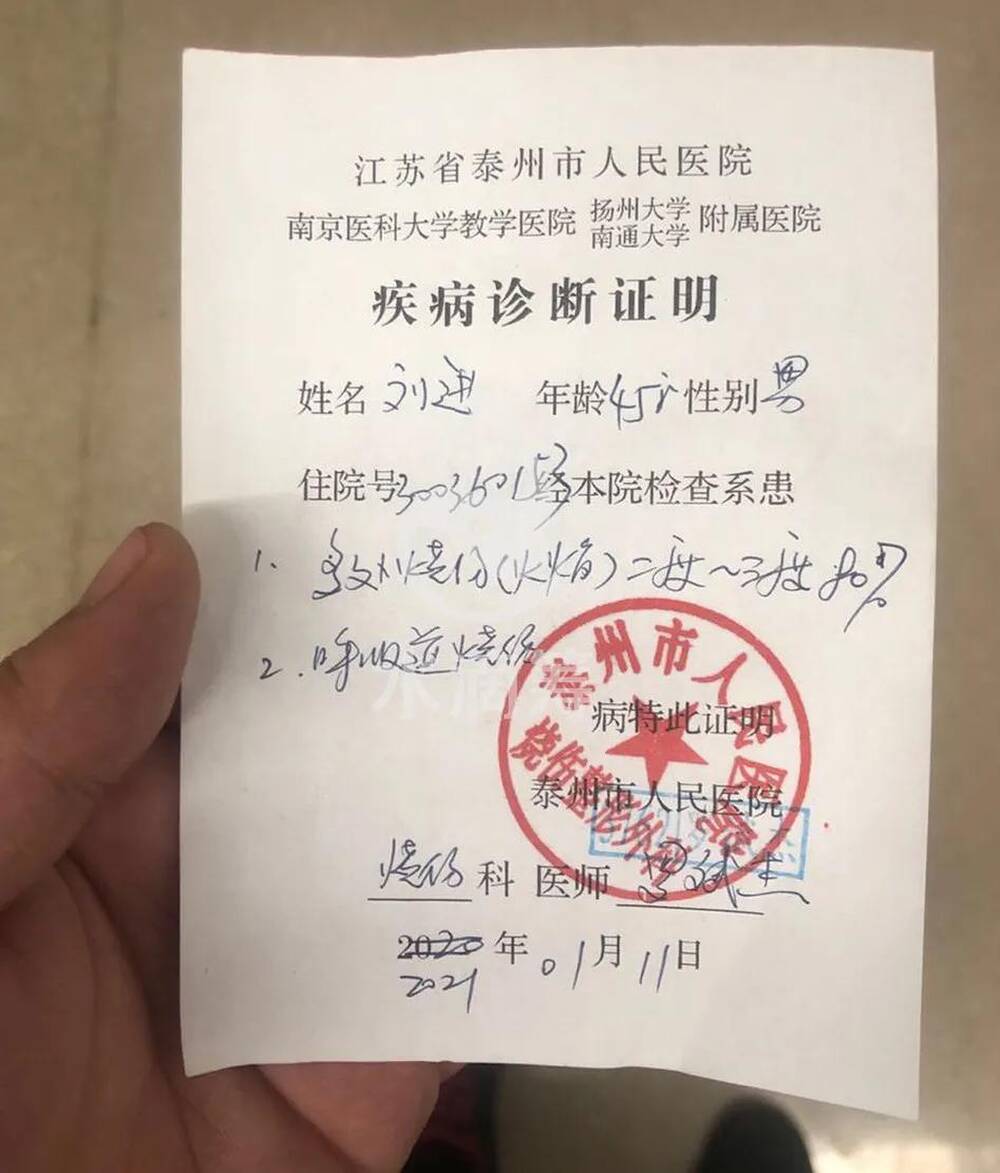 江苏省泰州市人民医院
南京医科大学教学医院 扬州大学 南通大学 附属医院
疾病诊断证明
姓名 刘进 年龄 45岁 性别 男
住院号 30036015 经本院检查系患
1. 多处烧伤(火焰)二度~三度 80%
2. 呼吸道烧伤
水滴筹
病特此证明
泰州市人民医院
泰州市人民医院
烧伤整形外科
烧伤 科 医师
2020 年 01月 11日
2021